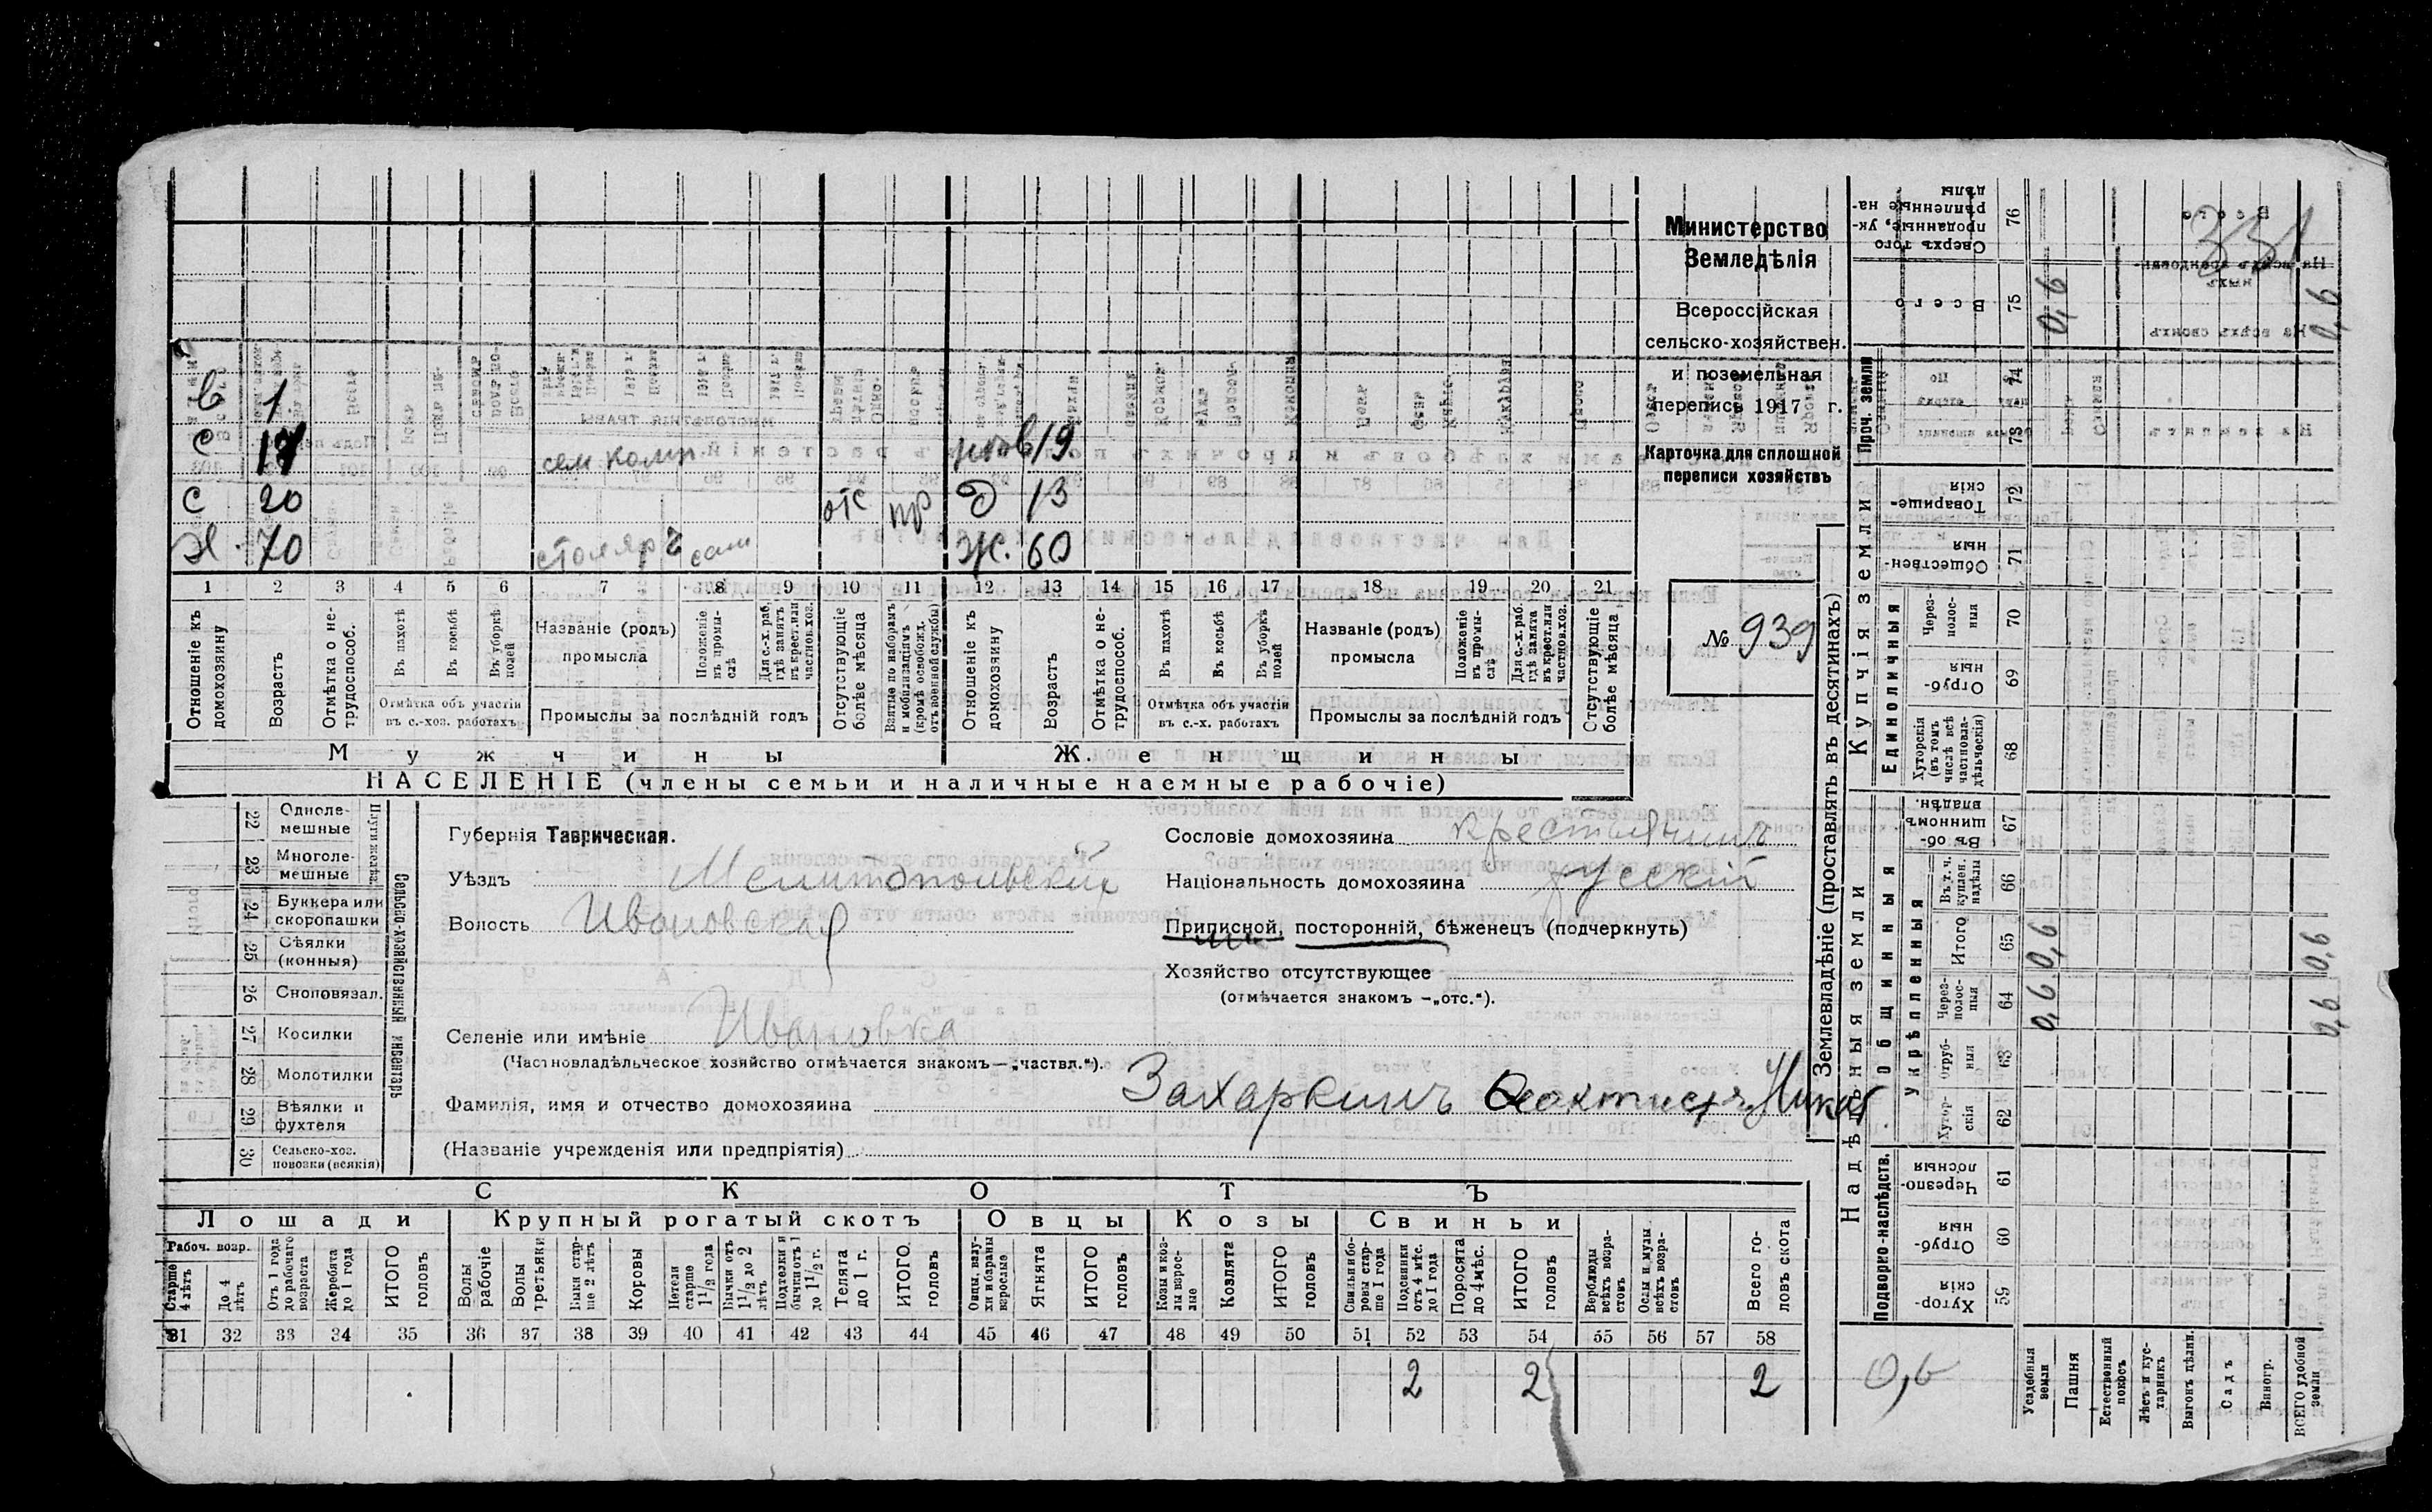 Министерство
Земледѣлія
Всероссійская
сельско-хозяйствен.
и поземельная
перепись 1917 г.
Карточка для сплошной
переписи хозяйствъ
№ 939
351
в 1
с 17 19
с 20 отс пр Д 13
Х. 70 столяръ Ж. 60
1 2 3 4 5 6 7 8 9 10 11 12 13 14 15 16 17 18 19 20 21
Отношеніе къ домохозяину
Возрастъ
Отмѣтка о нетрудоспособ.
Въ пахотѣ
Въ косьбѣ
Въ уборкѣ полей
Отмѣтка объ участіи
въ с.-хоз. работахъ
Названіе (родъ)
промысла
Положеніе въ промыслѣ
Для с.-х. раб. гдѣ занятъ въ крест. или частнов. хоз.
Промыслы за послѣдній годъ
Отсутствующіе болѣе мѣсяца
Взятые по наборамъ и мобилизаціямъ (кромѣ освобожд. отъ военной службы)
Отношеніе къ домохозяину
Возрастъ
Отмѣтка о нетрудоспособ.
Въ пахотѣ
Въ косьбѣ
Въ уборкѣ полей
Отмѣтка объ участіи
въ с.-х. работахъ
Названіе (родъ)
промысла
Положеніе въ промыслѣ
Для с.-х. раб. гдѣ занята въ крест. или частнов. хоз.
Промыслы за послѣдній годъ
Отсутствующіе болѣе мѣсяца
Мужчины Женщины
НАСЕЛЕНІЕ (члены семьи и наличные наемные рабочіе)
Сельско-хозяйственный инвентарь
22 Одноле-
мешные
23 Многоле-
мешные
24 Буккера или
скоропашки
25 Сѣялки
(конныя)
26 Сноповязал.
27 Косилки
28 Молотилки
29 Вѣялки и
фухтеля
30 Сельско-хоз.
повозки (всякія)
Губернія Таврическая.
Уѣздъ Мелитопольскій
Волость Ивановская
Селеніе или имѣніе Ивановка
(Частновладѣльческое хозяйство отмѣчается знакомъ—„частвл.“).
Сословіе домохозяина крестьянинъ
Національность домохозяина русскій
Приписной, посторонній, бѣженецъ (подчеркнуть)
Хозяйство отсутствующее
(отмѣчается знакомъ —„отс.“).
Фамилія, имя и отчество домохозяина Захаркинъ Феоктистъ Ник
(Названіе учрежденія или предпріятія)
СКОТЪ
Лошади Крупный рогатый скотъ Овцы Козы Свиньи
Рабоч. возр.
Старше 4 лѣтъ
До 4 лѣтъ
Отъ 1 года до рабочаго возраста
Жеребята до 1 года
ИТОГО головъ
Волы рабочіе
Волы третьяки
Быки старше 2 лѣтъ
Коровы
Нетели старше 1½ года
Бычки отъ 1½ до 2 лѣтъ
Подтелки и бычки отъ 1 до 1½ г.
Телята до 1 г.
ИТОГО головъ
Овцы, валухи и бараны взрослые
Ягнята
ИТОГО головъ
Козы и козлы взрослые
Козлята
ИТОГО головъ
Свиньи и боровы старше 1 года
Подсвинки отъ 4 мѣс. до 1 года
Поросята до 4 мѣс.
ИТОГО головъ
Верблюды всѣхъ возрастовъ
Ослы и мулы всѣхъ возрастовъ
Всего головъ скота
31 32 33 34 35 36 37 38 39 40 41 42 43 44 45 46 47 48 49 50 51 52 53 54 55 56 57 58
2 2 2
Землевладѣніе (проставлять въ десятинахъ)
Надѣльныя земли
Купчія земли
Проч. земли
Подворно-наслѣдств.
Общинныя
Укрѣпленныя
Единоличныя
Хуторскія 59
Отрубныя 60
Черезполосныя 61
Хуторскія 62
Отрубныя 63
Черезполосныя 64
Итого 65
Въ т. ч. куплен. надѣлы 66
Въ общинномъ владѣн. 67
Хуторскія (въ томъ числѣ всѣ частновладѣльческія) 68
Отрубныя 69
Черезполосныя 70
Общественныя 71
Товарищескія 72
73
74
Всего 75
Сверхъ того проданные, укрѣпленные надѣлы 76
0,6 0,6 0,6
0,6 0,6 0,6
0,6
Усадебныя земли
Пашня
Естественный покосъ
Лѣсъ и кустарникъ
Выгонъ цѣлин.
Садъ
Виногр.
ВСЕГО удобной земли